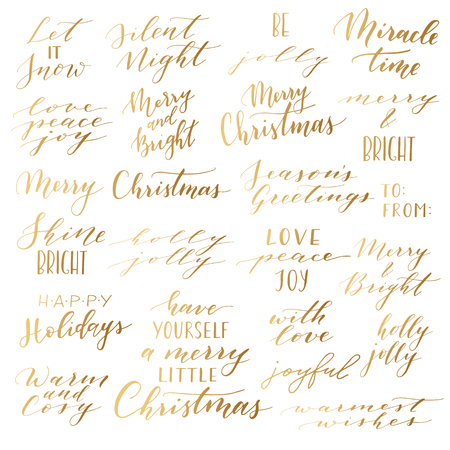 Let
IT
Snow
Silent
Night
BE
jolly
Miracle
time
love
peace
joy
Merry
and
Bright
Merry
Christmas
merry
&
BRIGHT
Merry Christmas
Season's
Greetings
TO:
FROM:
Shine
BRIGHT
holly
jolly
LOVE
peace
JOY
Merry
&
Bright
HAPPY
Holidays
have
YOURSELF
a merry
LITTLE
Christmas
with
love
holly
jolly
joyful
Warm
and
Cosy
warmest
wishes